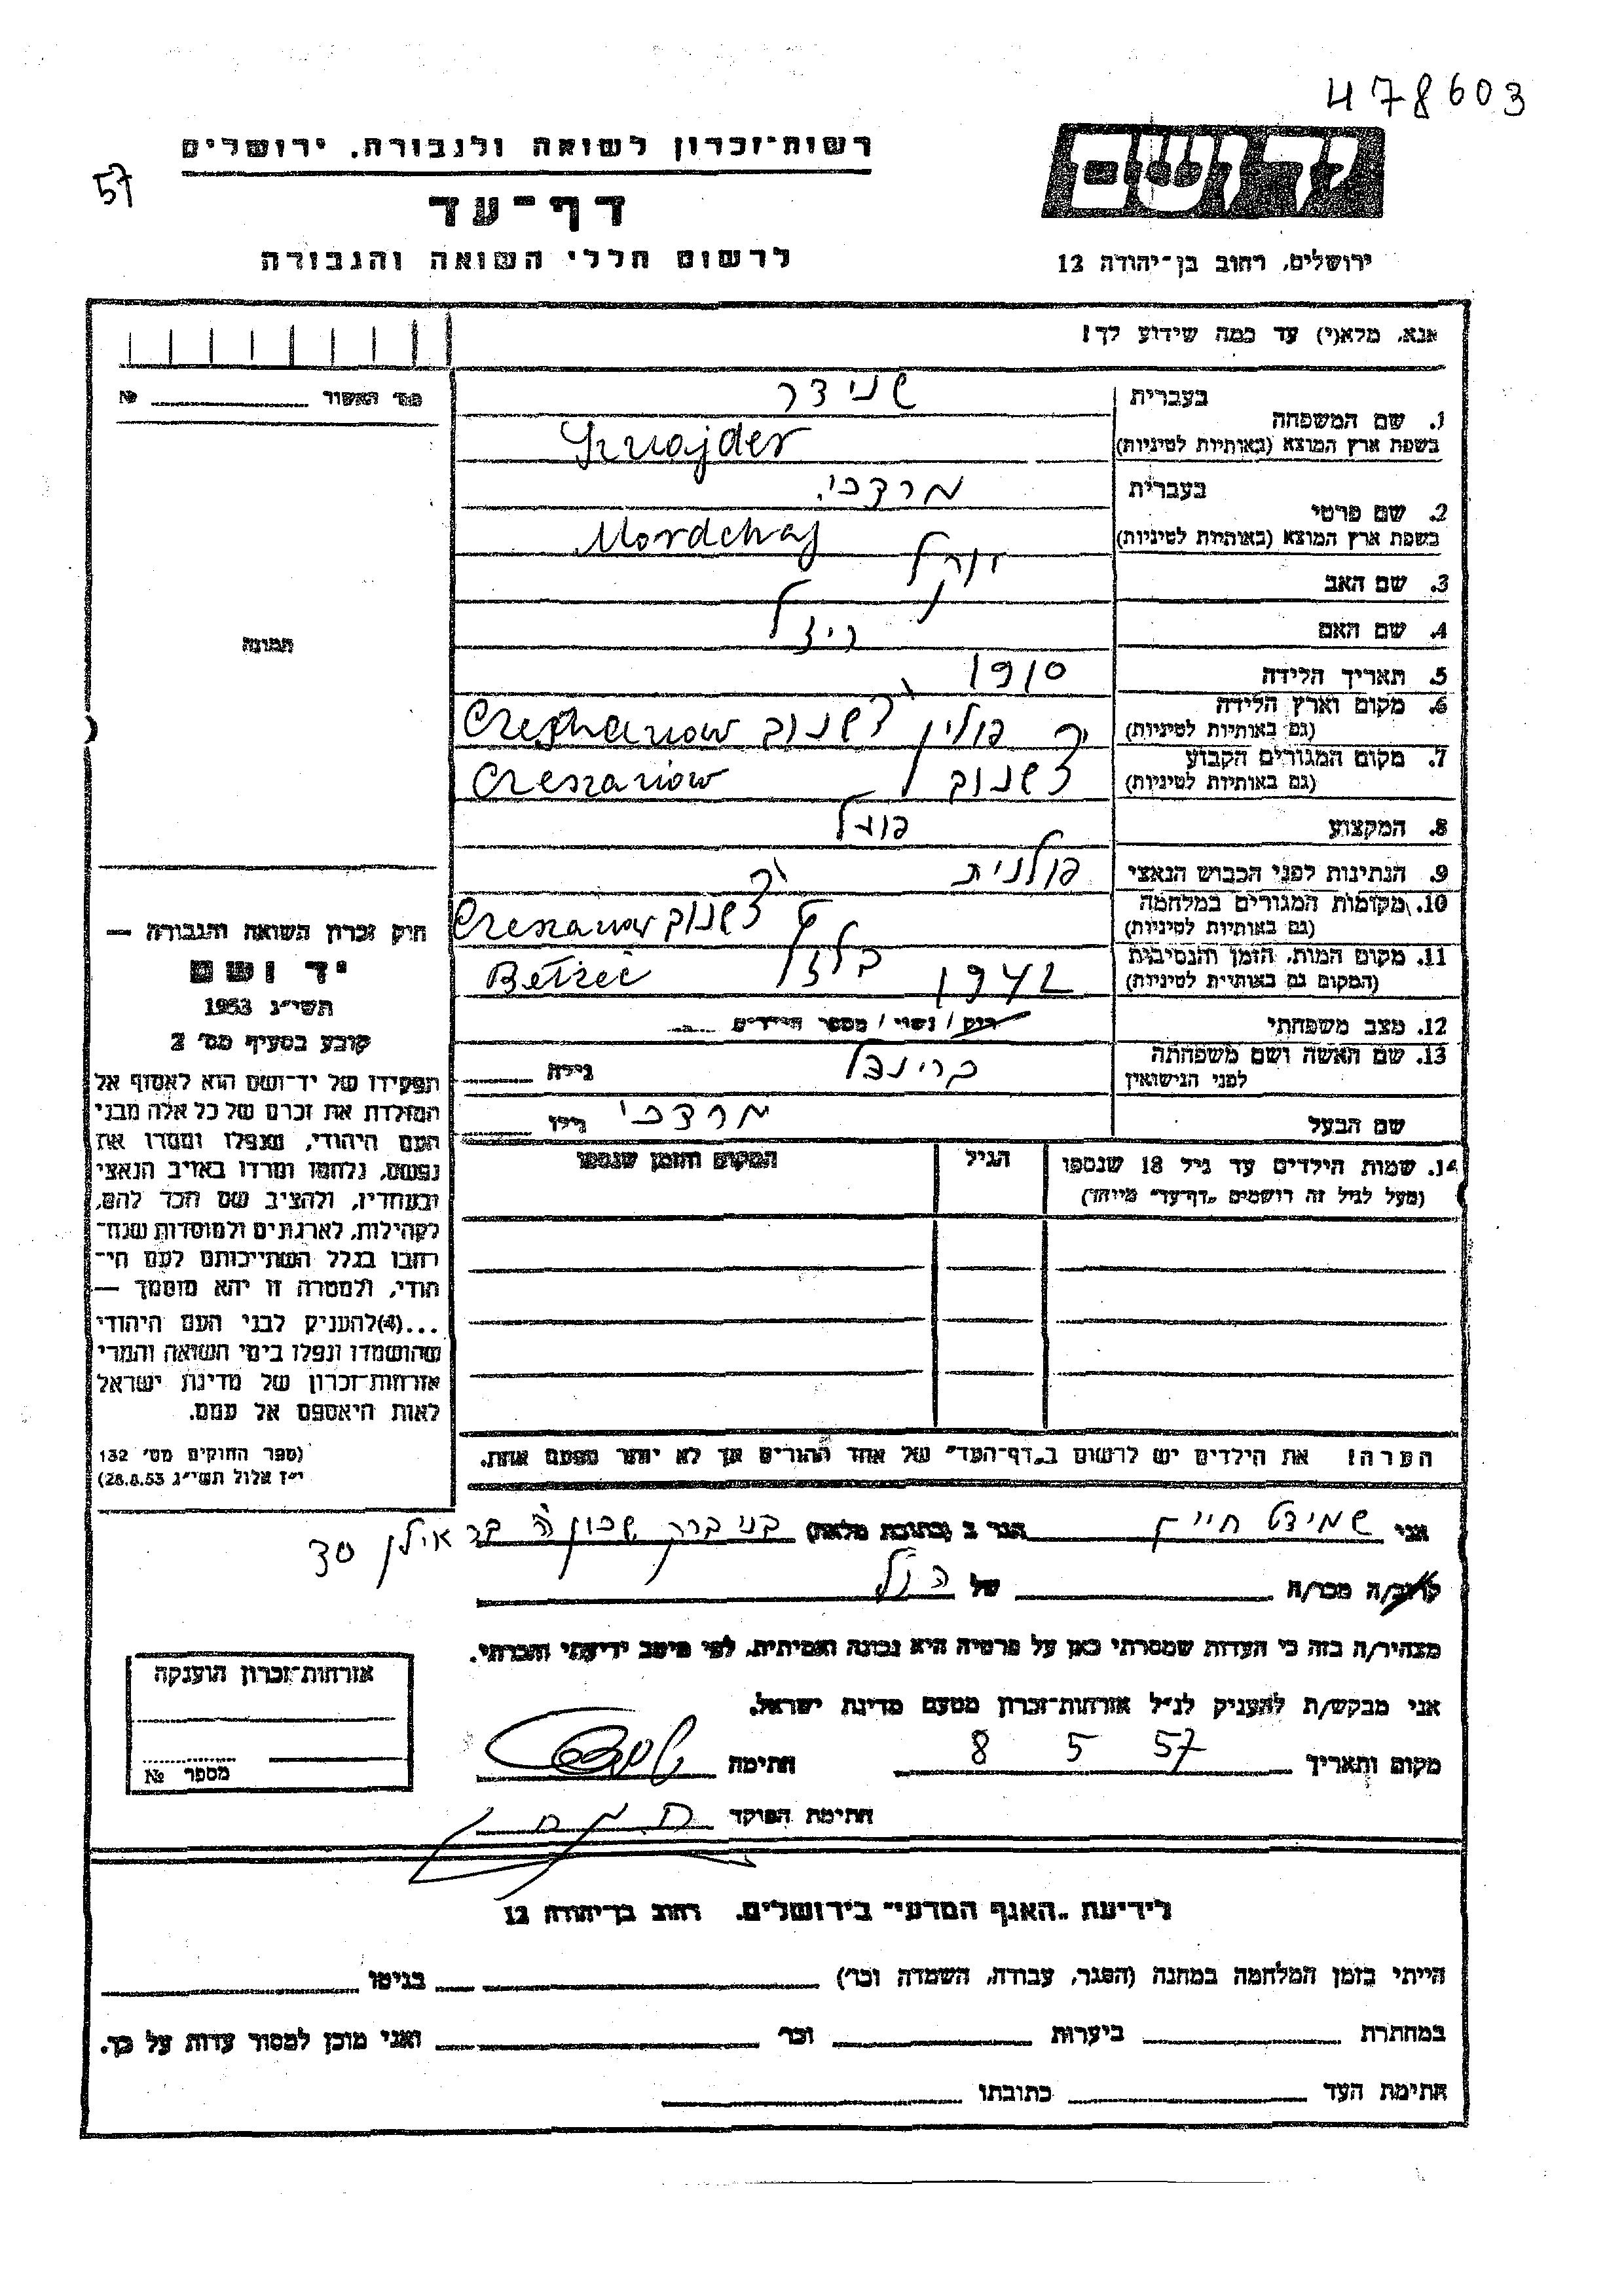 478603
57
רשות־זכרון לשואה ולגבורה, ירושלים
דף־עד
לרשום חללי השואה והגבורה
יד ושם
ירושלים, רחוב בן־יהודה 12
אנא, מלא(י) עד כמה שידוע לך!
מס׳ האשור №
תמונה
1. שם המשפחה
בעברית שניידר
בשפת ארץ המוצא (באותיות לטיניות) Sznajder
2. שם פרטי
בעברית מרדכי
בשפת ארץ המוצא (באותיות לטיניות) Mordchaj
3. שם האב
4. שם האם ריזל
5. תאריך הלידה 1910
6. מקום וארץ הלידה
(גם באותיות לטיניות) פולין
7. מקום המגורים הקבוע
(גם באותיות לטיניות) Cieszanow
8. המקצוע פועל
9. הנתינות לפני הכבוש הנאצי פולנית
10. מקומות המגורים במלחמה
(גם באותיות לטיניות) Cieszanow
11. מקום המות, הזמן והנסיבות
(המקום גם באותיות לטיניות) 1942 בלזץ Bełżec
12. מצב משפחתי רווק / נשוי / מספר הילדים
13. שם האשה ושם משפחתה
לפני הנישואין גילה
שם הבעל מרדכי גילו
14. שמות הילדים עד גיל 18 שנספו הגיל המקום והזמן שנספו
(מעל לגיל זה רושמים „דף־עד״ מיוחד)
הערה! את הילדים יש לרשום ב„דף־העד״ של אחד ההורים אך לא יותר מפעם אחת.
חוק זכרון השואה והגבורה —
יד ושם
תשי״ג 1953
קובע בסעיף מס׳ 2
תפקידו של יד־ושם הוא לאסוף אל
המולדת את זכרם של כל אלה מבני
העם היהודי, שנפלו ומסרו את
נפשם, נלחמו ומרדו באויב הנאצי
ובעוזריו, ולהציב שם וזכר להם,
לקהילות, לארגונים ולמוסדות שנח־
רבו בגלל השתייכותם לעם הי־
הודי, ולמטרה זו יהא מוסמך —
...(4)להעניק לבני העם היהודי
שהושמדו ונפלו בימי השואה והמרי
אזרחות־זכרון של מדינת ישראל
לאות היאספם אל עמם.
(ספר החוקים מס׳ 132
י״ז אלול תשי״ג 28.8.53)
אני שמידט חיים הגר ב (כתובת מלאה) בני ברק שכון ה׳ בר אילן
קרוב/ה מכר/ה של הנ״ל
מצהיר/ה בזה כי העדות שמסרתי כאן על פרטיה היא נכונה ואמיתית, לפי מיטב ידיעתי והכרתי.
אני מבקש/ת להעניק לנ״ל אזרחות־זכרון מטעם מדינת ישראל.
מקום ותאריך 8 5 57 חתימה
חתימת הפוקד
אזרחות־זכרון הוענקה
מספר №
לידיעת „האגף המדעי״ בירושלים. רחוב בן־יהודה 12
הייתי בזמן המלחמה במחנה (הסגר, עבודה, השמדה וכו׳) בגיטו
במחתרת ביערות וכו׳ ואני מוכן למסור עדות על כך.
חתימת העד כתובתו